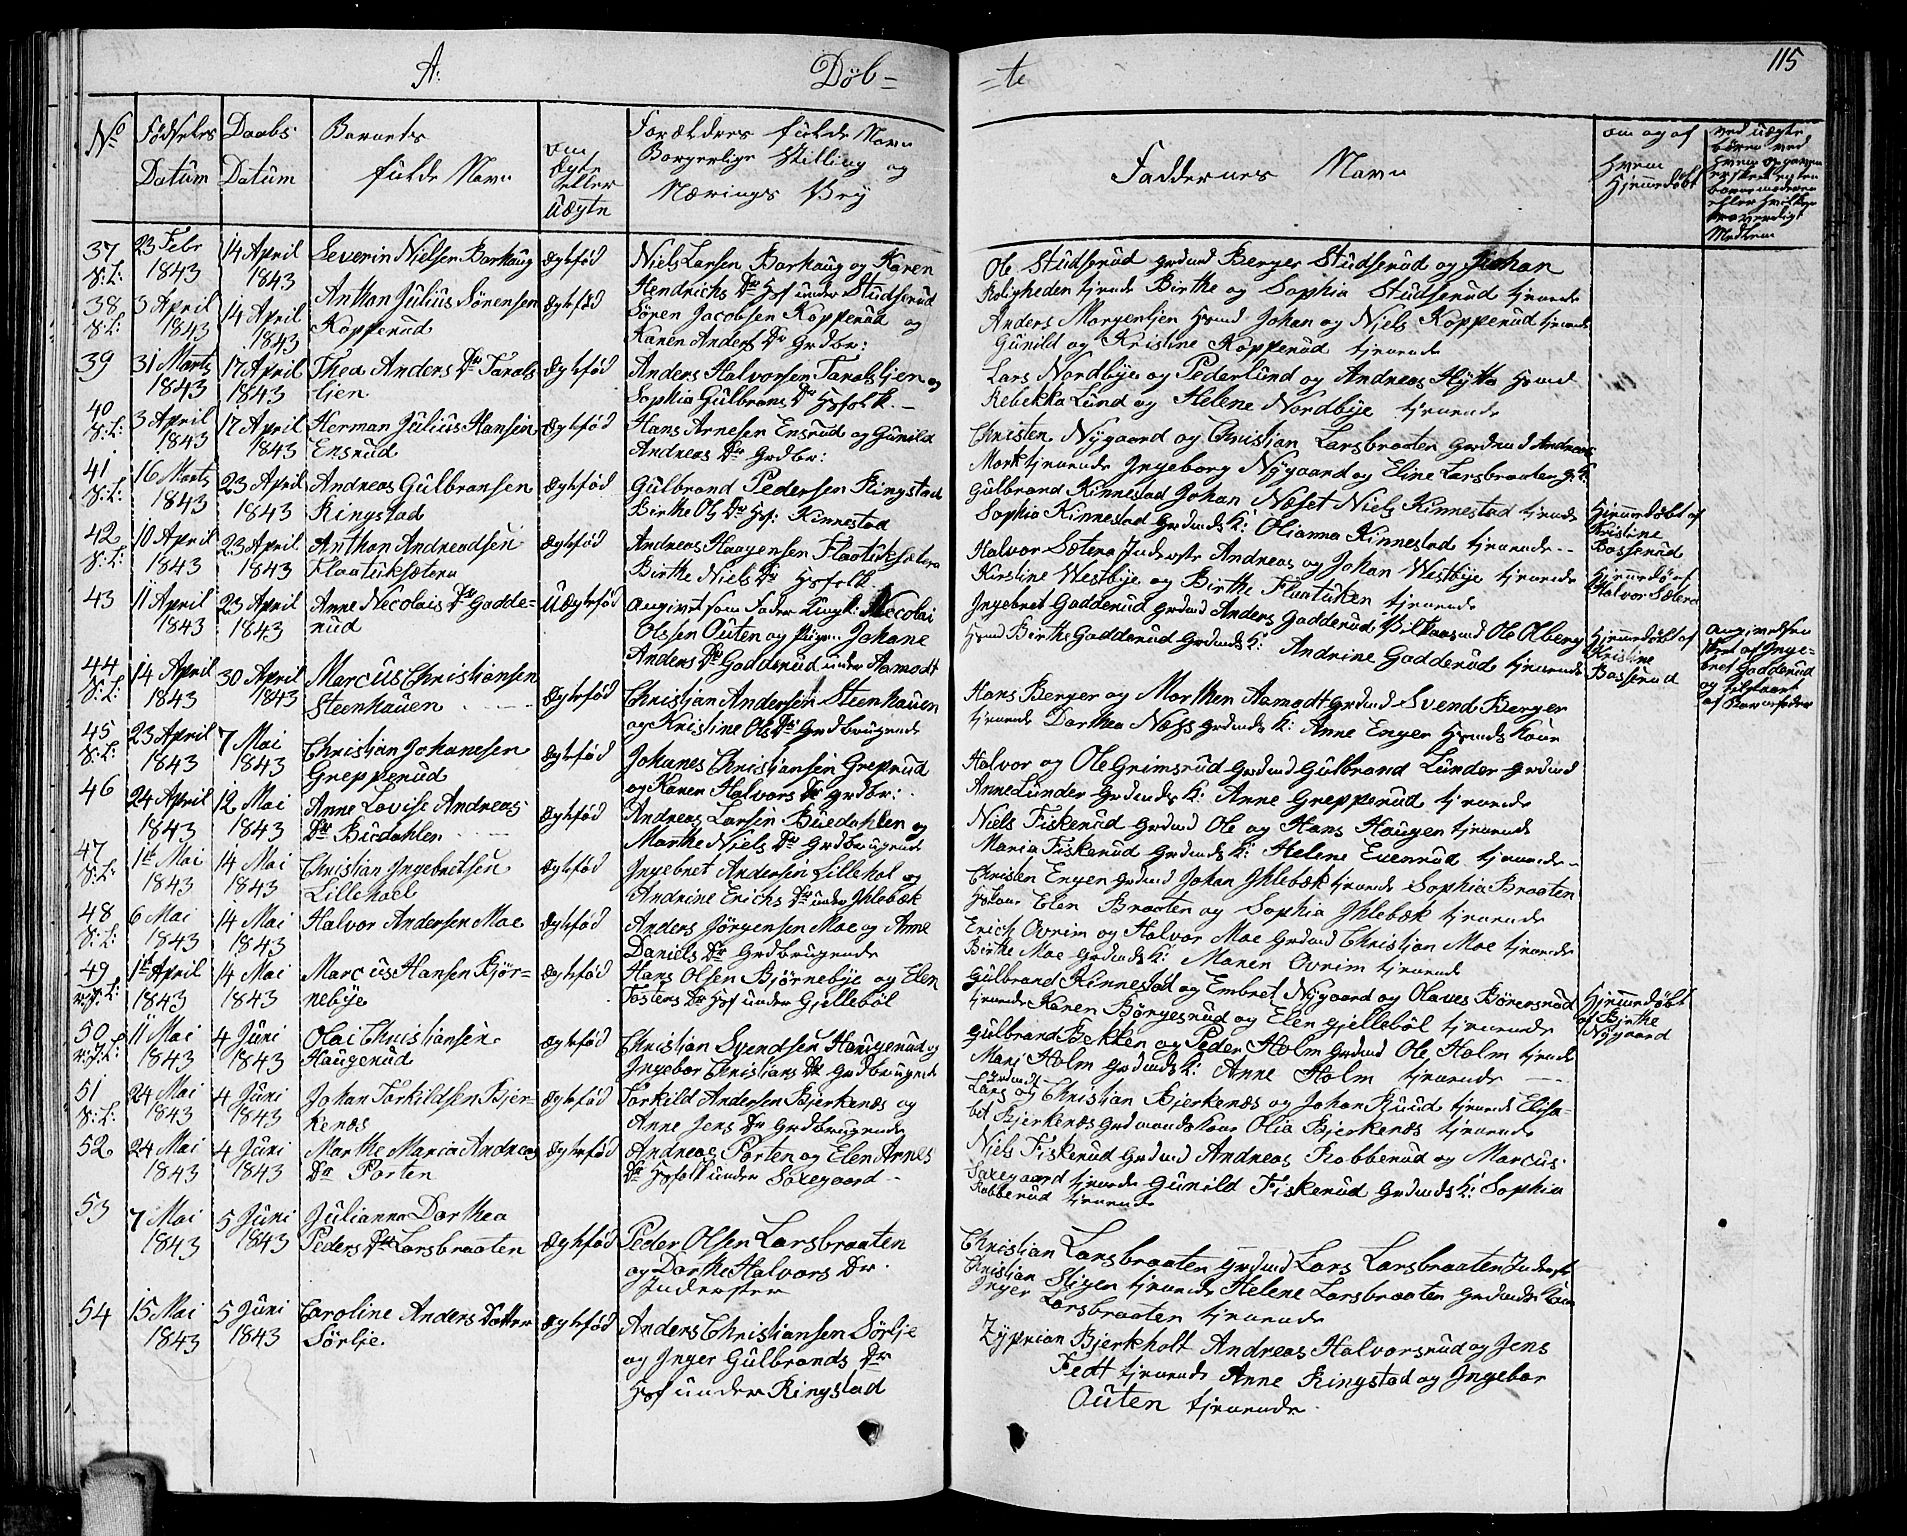 A:
Döb=
=te
115
No
Födsels Datum
Daabs Datum
Barnets fulde Navn
om Egte eller Uægte
Forældres fulde Navn Borgerlige Stilling og Nærings Vey
Faddernes Navn
om og af Hvem Hjemmedøbt
37
23 Febr 1843
14 April 1843
Severin Nielsen Barhaug
Ægtefød
Niels Larsen Barhaug og Karen
Hendrichs Dr Hsf under Studserud
Ole Studserud Grdmd Berger Studserud og Johan
Roligheden tjenende Birthe og Sophia Studserud tjenende
38
3 April 1843
14 April 1843
Anthon Julius Sörensen
Kopperud
Ægtefød
Sören Jacobsen Kopperud og
Karen Anders Dr Grdbr:
Anders Morgenlien Hsmd Johan og Niels Kopperud tjenende
Gunild og Kristine Kopperud tjenende
39
31 Marts 1843
17 April 1843
Thea Anders Dr Taralslien
Ægtefød
Anders Halvorsen Taralslien og
Sophia Gulbrans Dr Hsfolk
Lars Nordbye og Peder Lund og Andreas Hytta Hsmd
Rebekka Lund og Helene Nordbye tjenende
40
3 April 1843
17 April 1843
Herman Julius Hansen
Ensrud
Ægtefød
Hans Arnesen Ensrud og Gunild
Andreas Dr Grdbr:
Christen Nygaard og Christian Larsbraaten Grdmd Andreas
Mork tjenende Ingeborg Nygaard og Eline Larsbraaten G: K:
41
16 Marts 1843
23 April 1843
Andreas Gulbransen
Ringstad
Ægtefød
Gulbrand Pedersen Ringstad
Birthe Ols Dr Hsf: Kinnestad
Gulbrand Kinnestad Johan Noset Niels Kinnestad tjenende
Sophia Kinnestad Grdmds K: Olianna Kinnestad tjenende
Hjemmedøbt af Kristine Basserud
42
10 April 1843
23 April 1843
Anthon Andreadsen
Flaatuksætera
Ægtefød
Andreas Haagensen Flaatuksætera
Birthe Niels Dr Hsfolk
Halvor Sætera Inderst Andreas og Johan Westbye tjenende
Kirstine Westbye og Birthe Flaatuken tjenende
Hjemmedøbt Halvor Sætera
43
11 April 1843
23 April 1843
Anne Necolais Dr Gadde-
rud
Uægtefød
Angivet som Fader Ungk: Necolai
Olssen Outen og Pigen Johane
Anders Dr Gadderud under Aamodt
Ingebret Gadderud Grdmd Anders Gadderud Ole Olberg
Hsmd Birthe Gadderud Grdmds K: Andrine Gadderud tjenende
Hjemmedøbt af Kristine Basserud
Angivelsen skeet af Ingebret Gadderud
44
14 April 1843
30 April 1843
Marcus Christiansen
Steenhauen
Ægtefød
Christian Andersen Steenhauen
og Kristine Ols Dr Grdbrugende
Hans Berger og Morthen Aamodt Grdmd Svend Berger
tjenende Dorthea Næss Grdmds K: Anne Enger Hsmds Kone
45
23 April 1843
7 Mai 1843
Christian Johanesen
Grepperud
Ægtefød
Johanes Christiansen Greprud
og Karen Halvors Dr Grdbr:
Halvor og Ole Grimsrud Grdmd Gulbrand Lunder Grdmd
Anne Lunder Grdmds K: Anne Grepperud tjenende
46
24 April 1843
12 Mai 1843
Anne Lovise Andreas
Dr Buedahlen
Ægtefød
Andreas Larsen Buedahlen og
Marthe Niels Dr Grdbrugende
Niels Fiskerud Grdmd Ole og Hans Haugen tjenende
Maria Fiskerud Grdmds K: Helene Evenrud tjenende
47
1te Mai 1843
14 Mai 1843
Christian Ingebretsen
Lillehoel
Ægtefød
Ingebret Andersen Lillehol og
Andrine Erichs Dr under Ihlebæk
Christen Enger Grdmd Johan Ihlebæk tjenende Sophia Braaten
Hskone Elen Braaten og Sophia Ihlebæk tjenende
48
6 Mai 1843
14 Mai 1843
Halvor Andersen Moe
Ægtefød
Anders Jörgensen Moe og Anne
Daniels Dr Grdbrugende
Erich Ovrim og Halvor Moe Grdmd Christian Moe tjenende
Birthe Moe Grdmds K: Maren Ovrim tjenende
49
1te April 1843
14 Mai 1843
Marcus Hansen Bjør-
nebye
Ægtefød
Hans Olsen Bjørnebye og Elen
Tosters Dr Hsf under Gjelleböl
Gulbrand Kinnestad og Embret Nygaard og Olaves Börersrud
tjenende Karen Börgesrud og Elen Gjelleböl tjenende
Hjemmedøbt af Birthe Nygaard
50
11 Mai 1843
4 Juni 1843
Olai Christiansen
Haugerud
Ægtefød
Christian Svendsen Haugerud og
Ingebor Christians Dr Grdbrugende
Gulbrand Bekken og Peder Holm Grdmd Ole Holm tjenende
Mari Holm Grdmds K: Anne Holm tjenende
51
24 Mai 1843
4 Juni 1843
Johan Torkildsen Bjer-
kenæs
Ægtefød
Torkild Andersen Bjerkenæs og
Anne Jens Dr Grdbrugende
Lars og Christian Bjerkenæs og Johan Ruud tjenende Elisa-
bet Bjerkenæs Grdmands Kone Olia Bjerkenæs tjenende
52
24 Mai 1843
4 Juni 1843
Marthe Maria Andreas
Dr Porten
Ægtefød
Andreas Porten og Elen Arnes
Dr Hsfolk under Soxegaard
Niels Fiskerud Grdmd Andreas Robberud og Marcus
Soxegaard tjenende Gunild Fiskerud Grdmds K: Sophia
Robberud tjenende
53
7 Mai 1843
5 Juni 1843
Julianna Dorthea
Peders Dr Larsbraaten
Ægtefød
Peder Olsen Larsbraaten
og Dorthe Halvors Dr
Inderster
Christian Larsbraaten Grdmd Lars Larsbraaten Inderst
Christian Stigen tjenende Helene Larsbraaten Grdmds Kone
Inger Larsbraaten tjenende
54
15 Mai 1843
5 Juni 1843
Caroline Anders Datter
Sörlie
Ægtefød
Anders Christiansen Sörlje
og Inger Gulbrands Dr
Hsf under Ringstad
Zyprian Bjerkholt Andreas Halvorsrud og Jens
Fedt tjenende Anne Ringstad og Ingebor
Outen tjenende